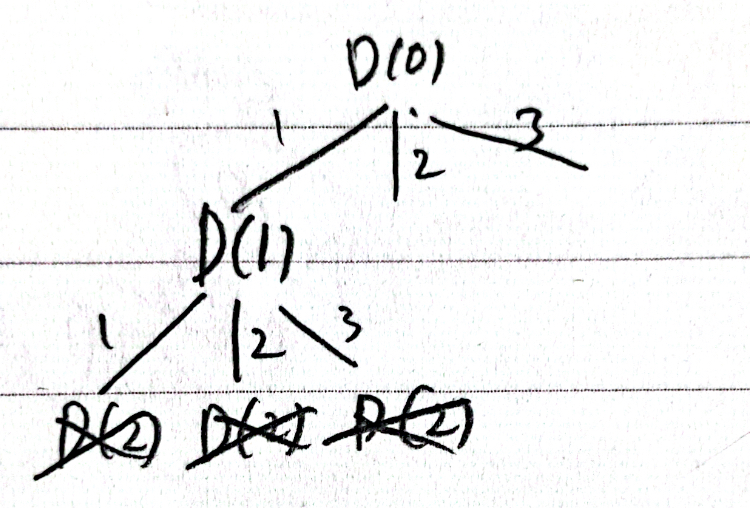 D(0)
1 2 3
D(1)
1 2 3
D(2) D(2) D(2)